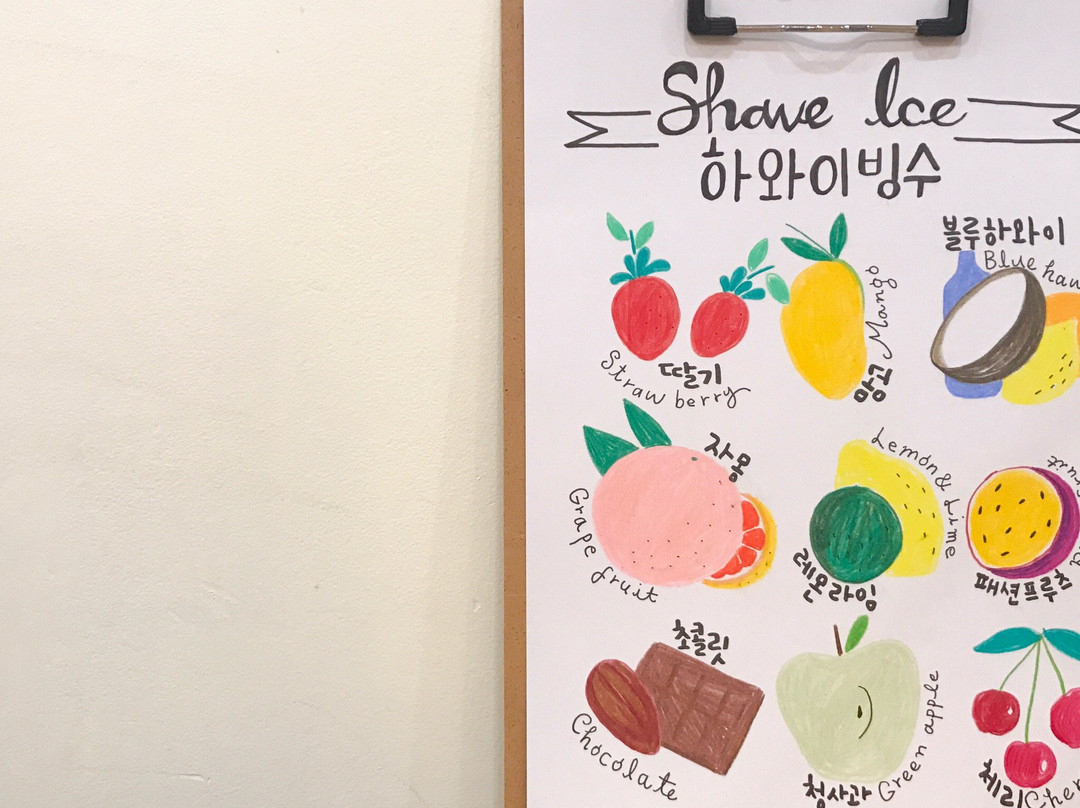 Shave Ice
하와이빙수
딸기
Strawberry
망고
Mango
블루하와이
Blue
자몽
Grape fruit
레몬라임
Lemon & Lime
패션프루츠
초콜릿
Chocolate
청사과
Green apple
체리